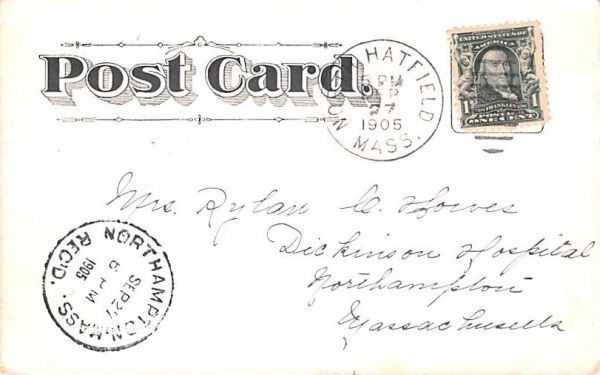 Post Card.
NO. HATFIELD
MASS.
5 PM
SEP
27
1905
UNITED STATES OF
AMERICA
FRANKLIN
1 1
POSTAGE
ONE CENT
Mrs. Rylan C. Howes
Dickinson Hospital
Northampton
Massachusetts
NORTHAMPTON, MASS.
SEP 27
PM
1905
REC'D.